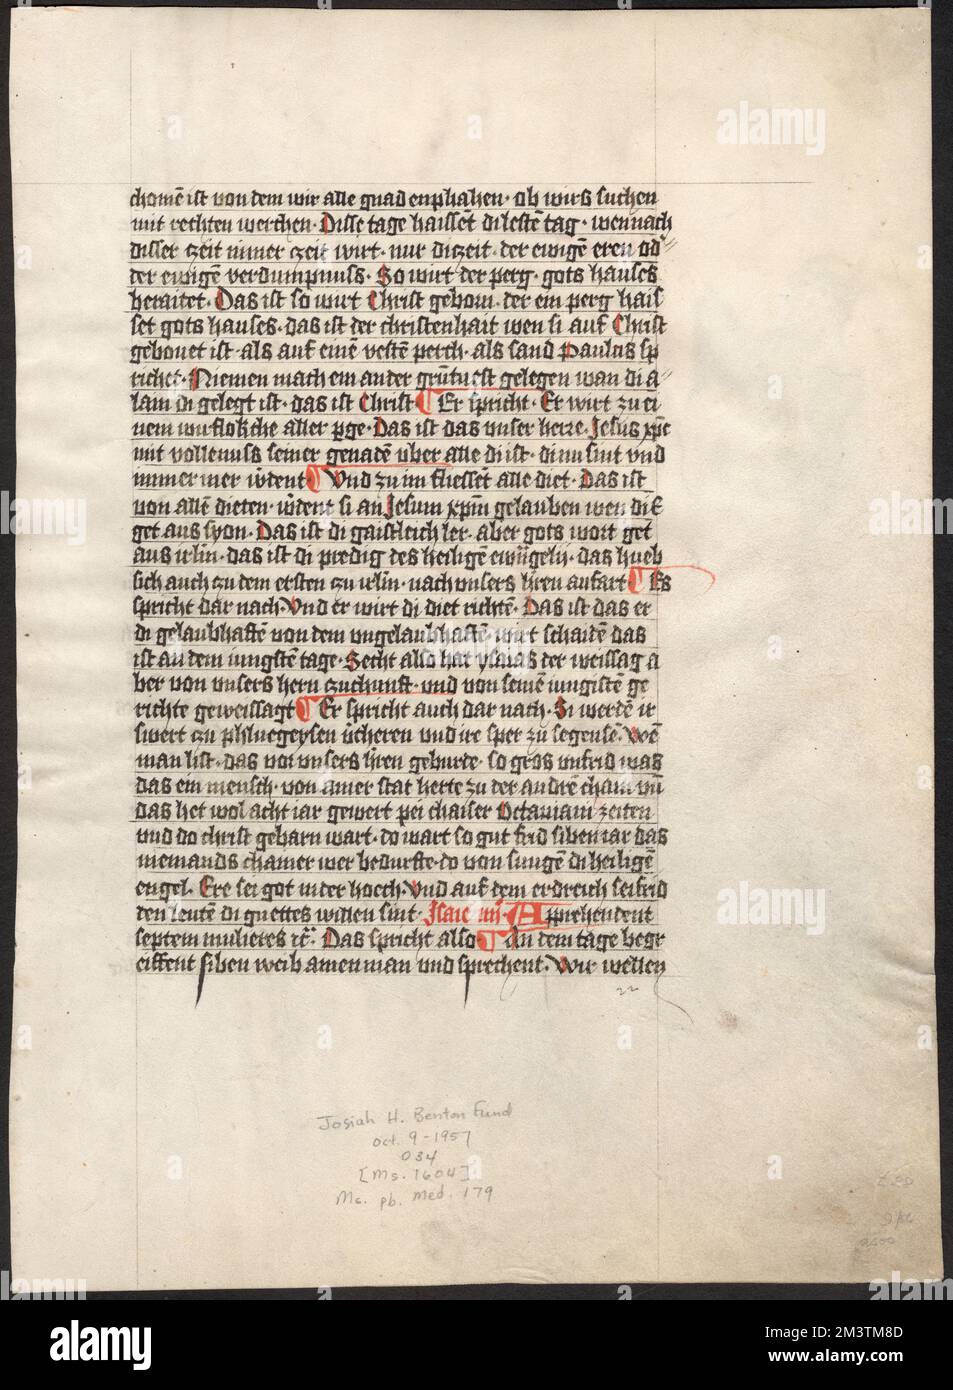 chomē ist von dem wir alle gnad enphahen · ob wirß suchen
mit rechten werchen · Disse tage haissēt di lestē tag · wen nach
disser czeit nimer czeit wirt · nur di zeit · der ewigē eren od
der ewigē verdumpnuss · So wirt der perg · gots hauses
beraitet · Das ist so wirt Christ geborn · der ein perg hais
set gots hauses · das ist der christenhait wen si auf Christ
gebouet ist · als auf einē vestē perch · als sand Paulus sp
richet · Niemen mach ein ander grūtuest gelegen wan di a
lain di gelegt ist · das ist Christ ¶ Er spricht · Er wirt zu ei
nem aller pge · Das ist das vnser herre · Jesus xp̄c
mit vollenuss seiner genadē uber alle di ist · di nu sint vnd
immer mer w̄dent ¶ Vnd zu im fliessēt alle diet · Das ist
von allē dieten · w̄dent si an Jesum xp̄m gelauben wen di
get aus syon · Das ist di gaistleich ler · aber gots wort get
aus ir̄lm · das ist di predig des heiligē ewāgelij · das hueb
sich auch zu dem ersten czu ir̄lm · nach vnsers h̄ren aufart ¶ Es
spricht dar nach · Vnd er wirt di diet richtē · Das ist das er
di gelaubhaftē von dem vngelaubhaftē · wirt schaidē das
ist an dem iungstē tage · Secht also hat ysaias der weissag a
ber von vnsers hern czuchunft · vnd von seinē iungistē ge
richte geweissagt ¶ Er spricht auch dar nach · Si werdē ir
swert czu phluegeysen vnd ire sper zu segensē · Wē
man list · das vor vnsers h̄ren geburde · so gros vnfrid was
das ein mensch · von ainer stat herte zu der andrē cham vn̄
das het wol acht iar gewert pei chaiser Octaviani zeiten
vnd do christ geborn wart · do wart so gut frid siben iar das
niemands chainer wer bedurfte · do von sungē di heiligē
engel · Ere sei got in der hoech · Vnd auf dem erdreich sei frid
den leutē di guettes willen sint · Isaie iiij · Apprehendent
septem mulieres rc̄ · Das spricht also ¶ An dem tage begr
eiffent siben weib ainen man vnd sprechent · Wir wellen
Josiah H. Benton Fund
oct. 9-1957
034
[Ms. 1604]
Ms. pb. Med. 179
alamy
Image ID: 2M3TM8D
www.alamy.com